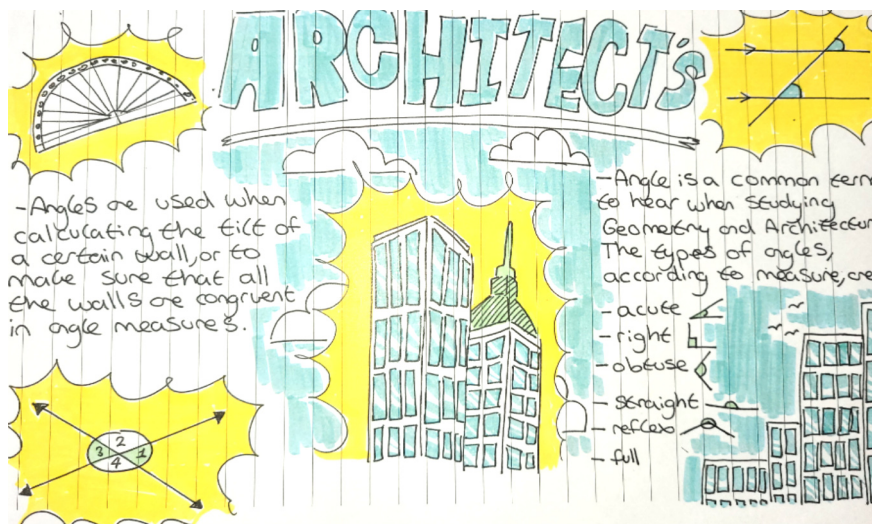 ARCHITECT's
-Angles are used when
calculating the tilt of
a certain wall, or to
make sure that all
the walls are congruent
in angle measures.
2
3 1
4
-Angle is a common term
to hear when studying
Geometry and Architectur
The types of angles,
according to measure, are
- acute
- right
- obtuse
- straight
- reflexo
- full